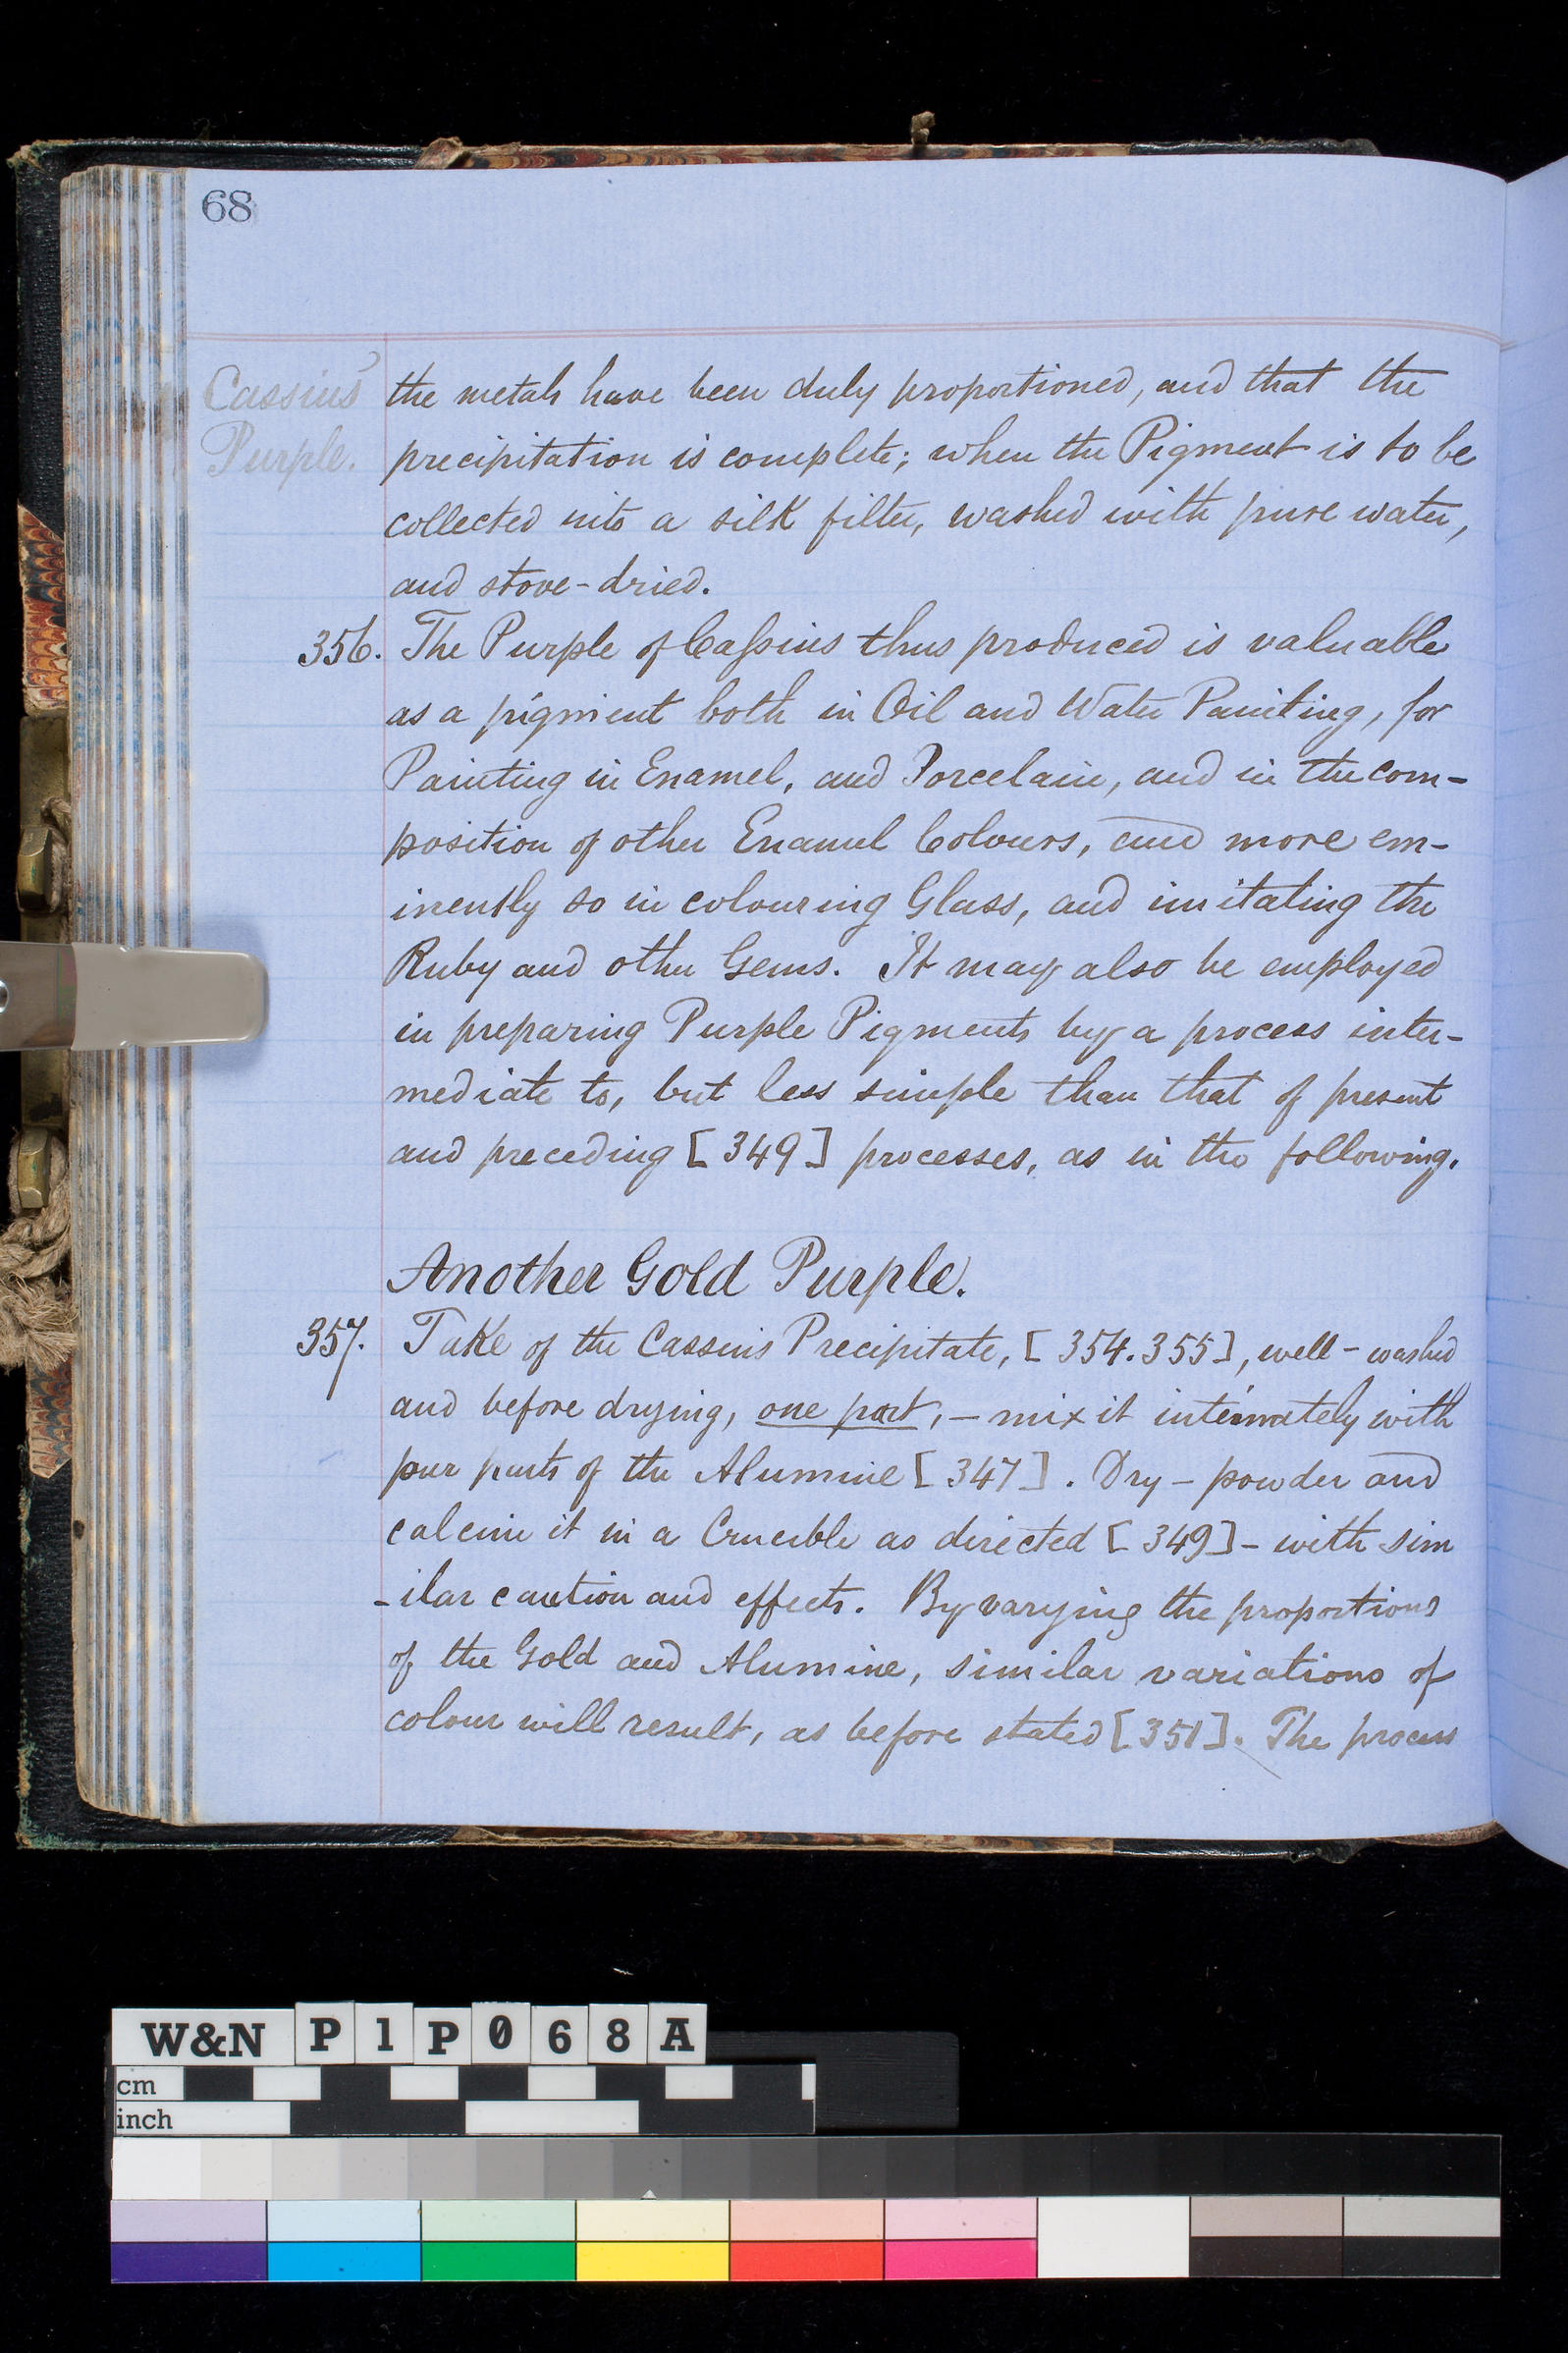 68
Cassius'
Purple.
the metals have been duly proportioned, and that the
precipitation is complete; when the Pigment is to be
collected into a silk filter, washed with pure water,
and stove-dried.
356. The Purple of Caſsius thus produced is valuable
as a pigment both in Oil and Water Painting, for
Painting in Enamel, and Porcelain, and in the com-
position of other Enamel Colours, and more em-
inently so in colouring Glass, and imitating the
Ruby and other Gems. It may also be employed
in preparing Purple Pigments by a process inter-
mediate to, but less simple than that of present
and preceding [349] processes, as in the following.
Another Gold Purple.
357. Take of the Cassius Precipitate, [354.355], well-washed
and before drying, one part, - mix it intimately with
parts of the Alumine [347]. Dry - powder and
calcine it in a Crucible as directed [349] - with sim
-ilar caution and effects. By varying the proportions
of the Gold and Alumine, similar variations of
colour will result, as before stated [351]. The process
W&N P1P068A
cm
inch